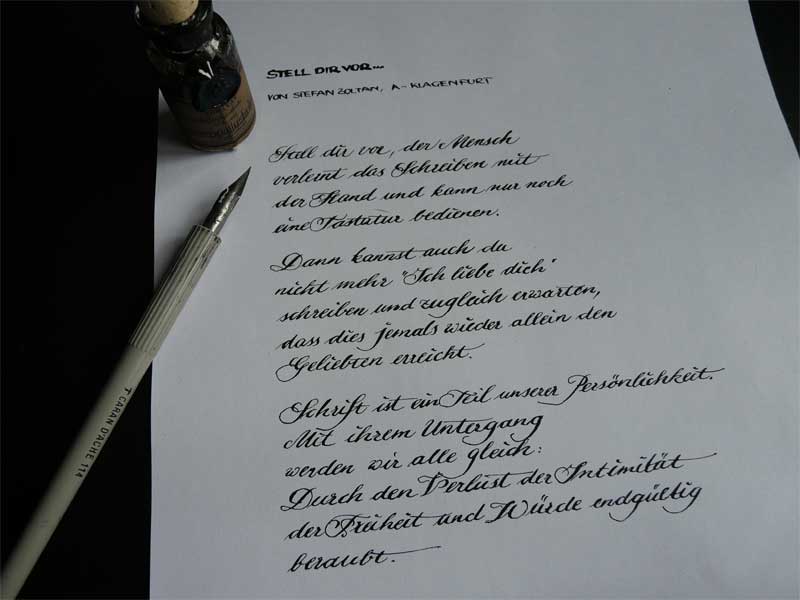 STELL DIR VOR...
VON STEFAN ZOLTAN, A-KLAGENFURT
Stell dir vor, der Mensch
verlernt das Schreiben mit
der Hand und kann nur noch
eine Tastatur bedienen.
Dann kannst auch du
nicht mehr "Ich liebe dich"
schreiben und zugleich erwarten,
dass dies jemals wieder allein den
Geliebten erreicht.
Schrift ist ein Teil unserer Persönlichkeit.
Mit ihrem Untergang
werden wir alle gleich:
Durch den Verlust der Intimität
der Freiheit und Würde endgültig
beraubt.
CARAN D'ACHE 114